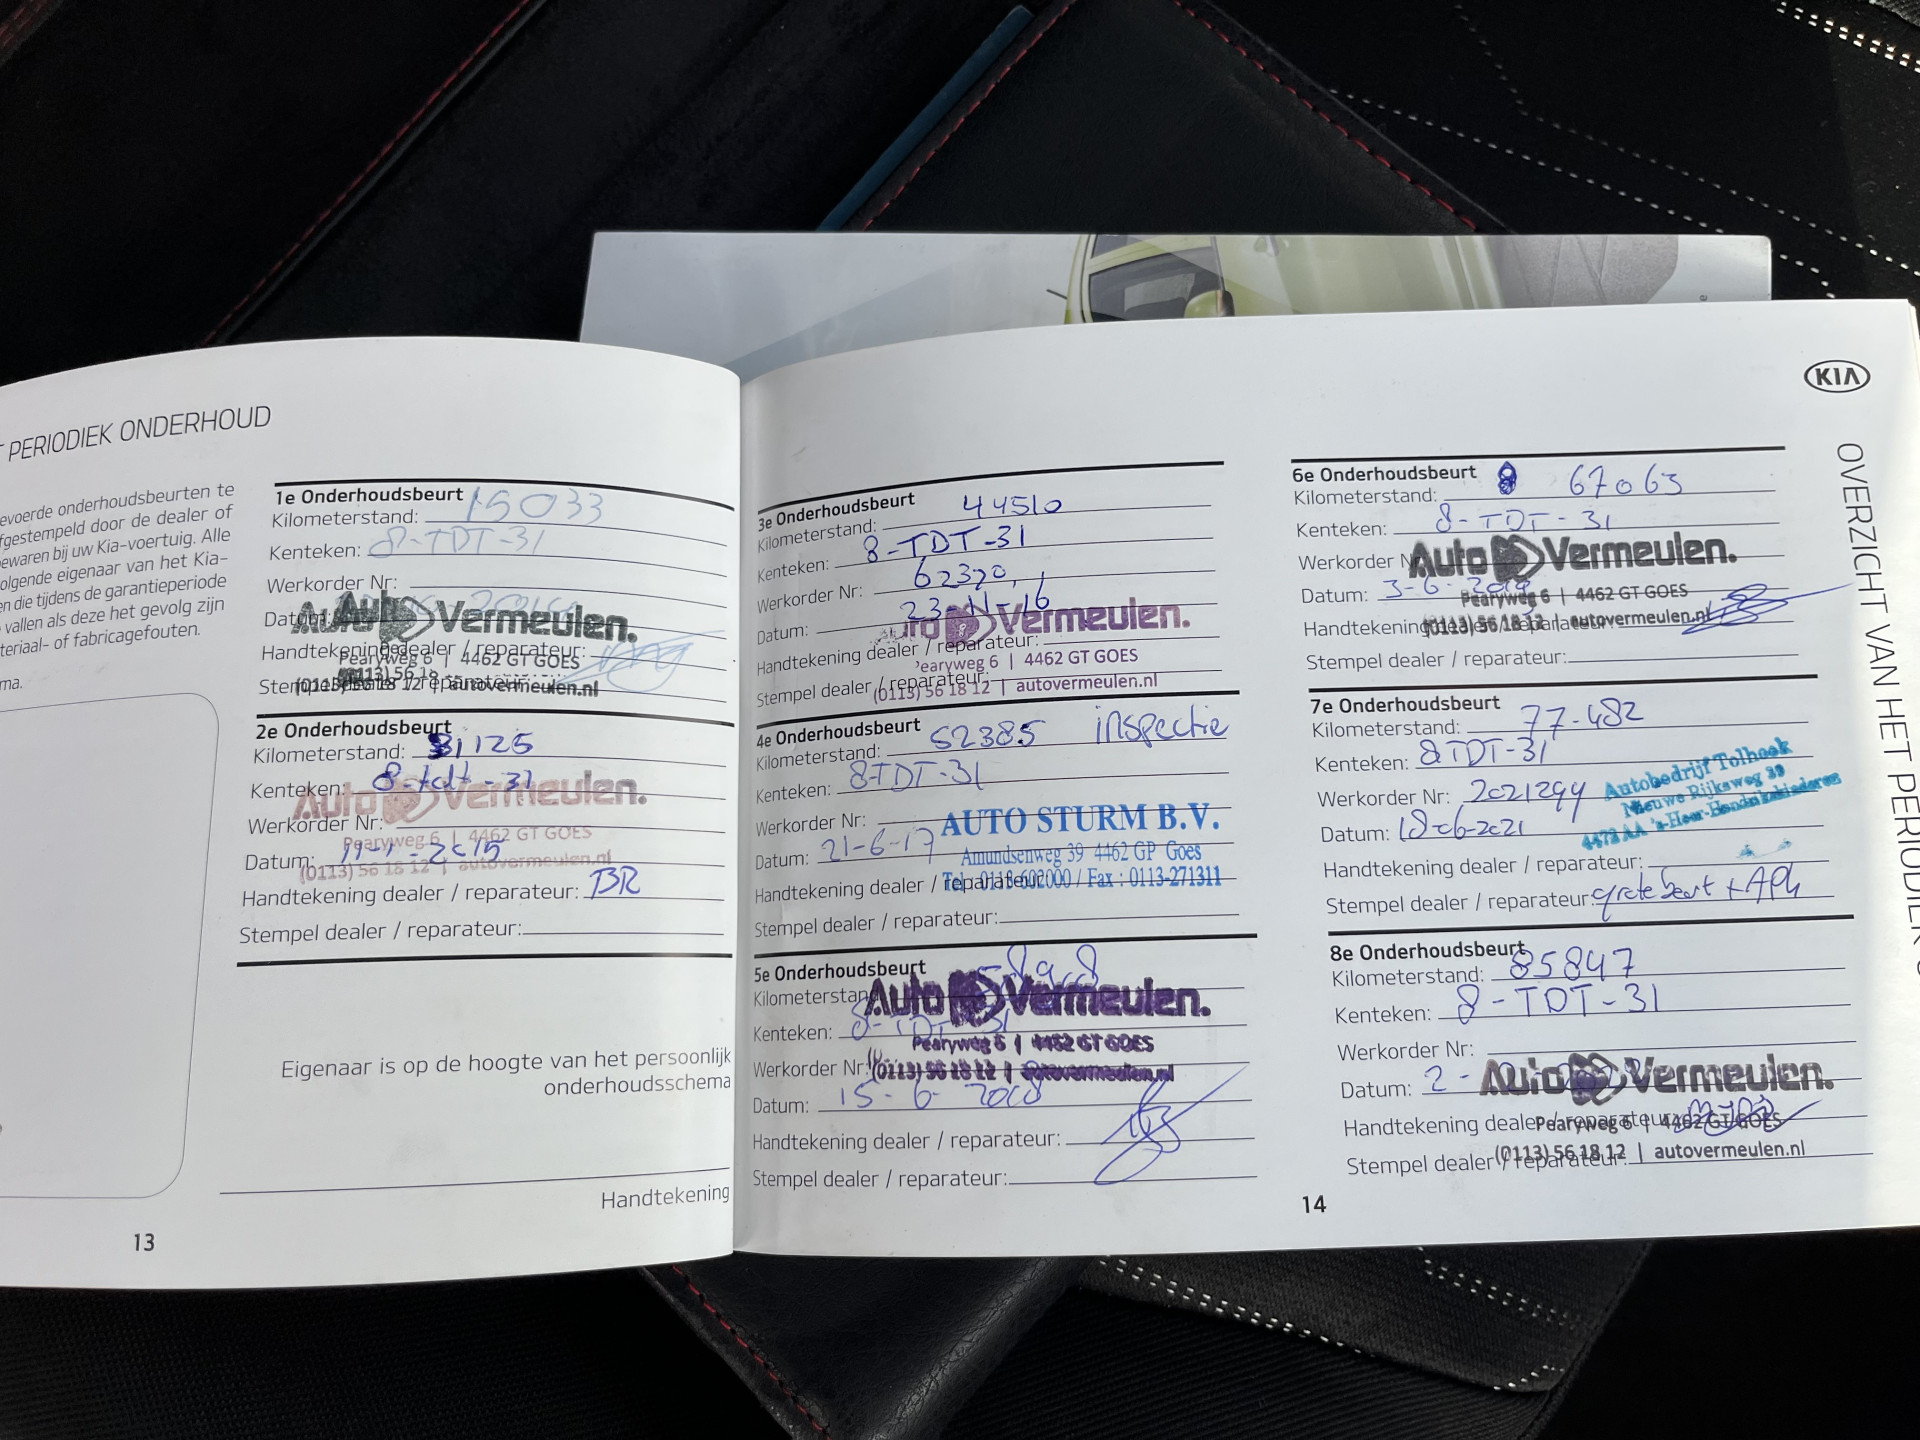 T PERIODIEK ONDERHOUD
evoerde onderhoudsbeurten te
fgestempeld door de dealer of
ewaren bij uw Kia-voertuig. Alle
olgende eigenaar van het Kia-
en die tijdens de garantieperiode
vallen als deze het gevolg zijn
teriaal- of fabricagefouten.
ma.
13
1e Onderhoudsbeurt
Kilometerstand: 15033
Kenteken: 8-TDT-31
Werkorder Nr:
Datum:
Auto Vermeulen.
Handtekening dealer / reparateur:
Pearyweg 6 | 4462 GT GOES
Stempel dealer / reparateur:
(0113) 56 18 12 | autovermeulen.nl
2e Onderhoudsbeurt
Kilometerstand: 31125
Kenteken: 8-tdt-31
Auto Vermeulen.
Werkorder Nr:
Pearyweg 6 | 4462 GT GOES
Datum: 2015
(0113) 56 18 12 | autovermeulen.nl
Handtekening dealer / reparateur: BR
Stempel dealer / reparateur:
Eigenaar is op de hoogte van het persoonlijk
onderhoudsschema
Handtekening
3e Onderhoudsbeurt
Kilometerstand: 44510
Kenteken: 8-TDT-31
Werkorder Nr: 62320
Datum: 23-11-16
Auto Vermeulen.
Handtekening dealer / reparateur:
earyweg 6 | 4462 GT GOES
Stempel dealer / reparateur:
(0113) 56 18 12 | autovermeulen.nl
4e Onderhoudsbeurt
Kilometerstand: 52385 inspectie
Kenteken: 8TDT-31
Werkorder Nr:
AUTO STURM B.V.
Datum: 21-6-17
Amundsenweg 39 4462 GP Goes
Handtekening dealer / reparateur:
Tel: 0113-602000 / Fax : 0113-271311
Stempel dealer / reparateur:
5e Onderhoudsbeurt
Kilometerstand
Auto Vermeulen.
Kenteken: 8-TDT-31
Pearyweg 6 | 4462 GT GOES
Werkorder Nr:
(0113) 56 18 12 | autovermeulen.nl
Datum: 15-6-2018
Handtekening dealer / reparateur:
Stempel dealer / reparateur:
KIA
6e Onderhoudsbeurt
Kilometerstand: 67063
Kenteken: 8-TDT-31
Werkorder N
Auto Vermeulen.
Datum: 3-6-
Pearyweg 6 | 4462 GT GOES
Handtekening dealer / reparateur:
(0113) 56 18 12 | autovermeulen.nl
Stempel dealer / reparateur:
7e Onderhoudsbeurt
Kilometerstand: 77.482
Kenteken: 8TDT-31
Werkorder Nr: 2021299
Datum: 18-06-2021
Autobedrijf Tolhoek
Nieuwe Rijksweg
4472 AA 's-Heer-Hendrikskinderen
Handtekening dealer / reparateur:
Stempel dealer / reparateur: grote beurt + APK
8e Onderhoudsbeurt
Kilometerstand: 85847
Kenteken: 8-TDT-31
Werkorder Nr:
Datum: 2-
Auto Vermeulen.
Handtekening dealer / reparateur:
Pearyweg 6 | 4462 GT GOES
Stempel dealer / reparateur:
(0113) 56 18 12 | autovermeulen.nl
14
OVERZICHT VAN HET PERIODIEK